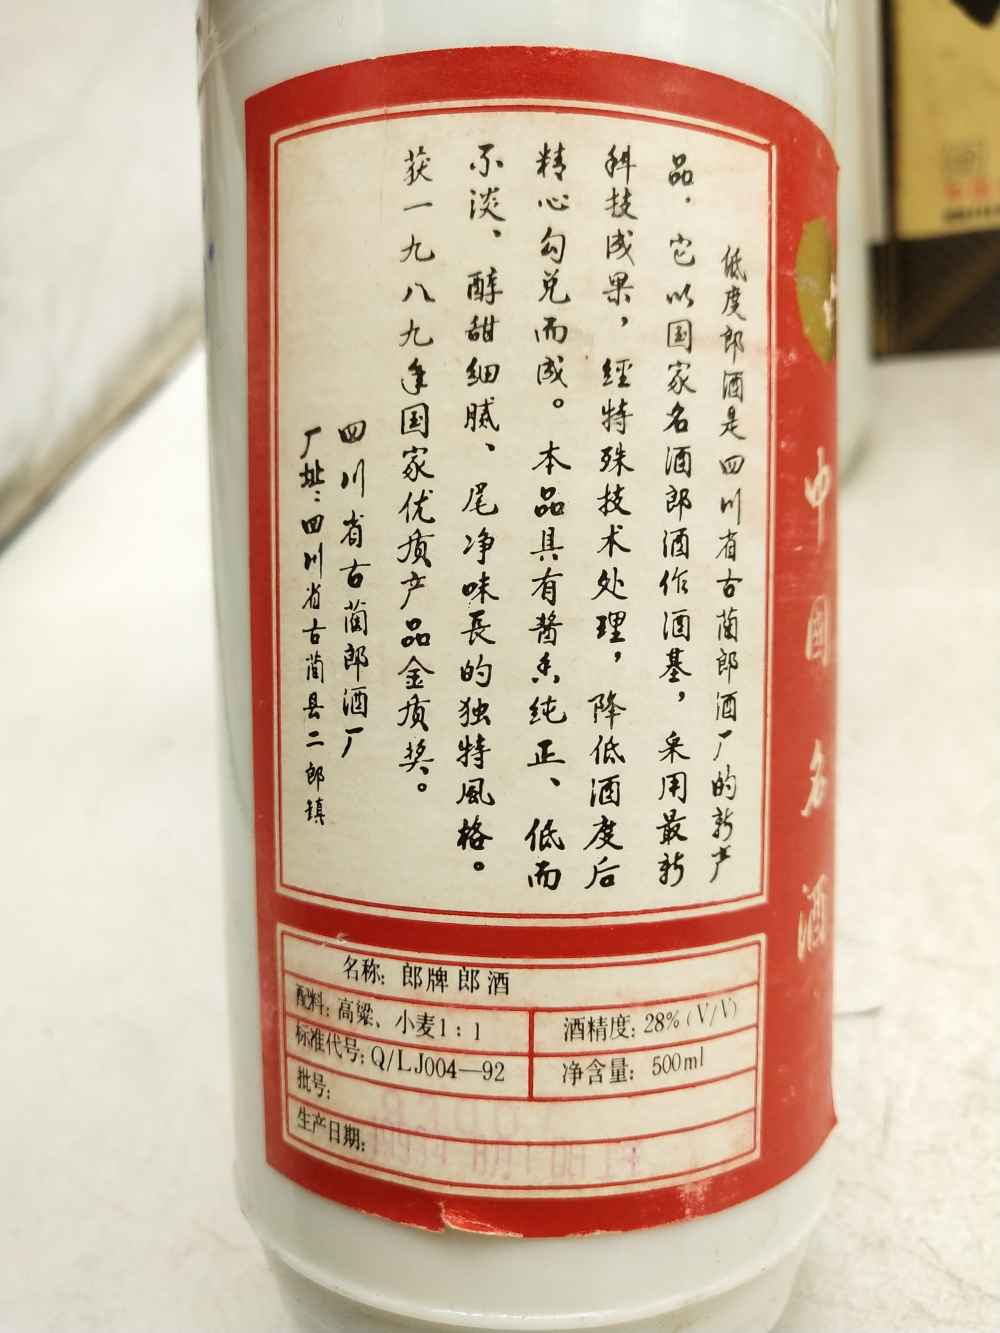 低度郎酒是四川省古蔺郎酒厂的新产
品．它以国家名酒郎酒作酒基，采用最新
科技成果，经特殊技术处理，降低酒度后
精心勾兑而成。本品具有酱香纯正、低而
不淡、醇甜细腻、尾净味長的独特風格。
获一九八九年国家优质产品金质奖。
四川省古蔺郎酒厂
厂址：四川省古蔺县二郎镇
中国名酒
名称：郎牌郎酒
配料：高粱、小麦1：1
酒精度：28%(V/V)
标准代号：Q/LJ004—92
净含量：500ml
批号：
生产日期：